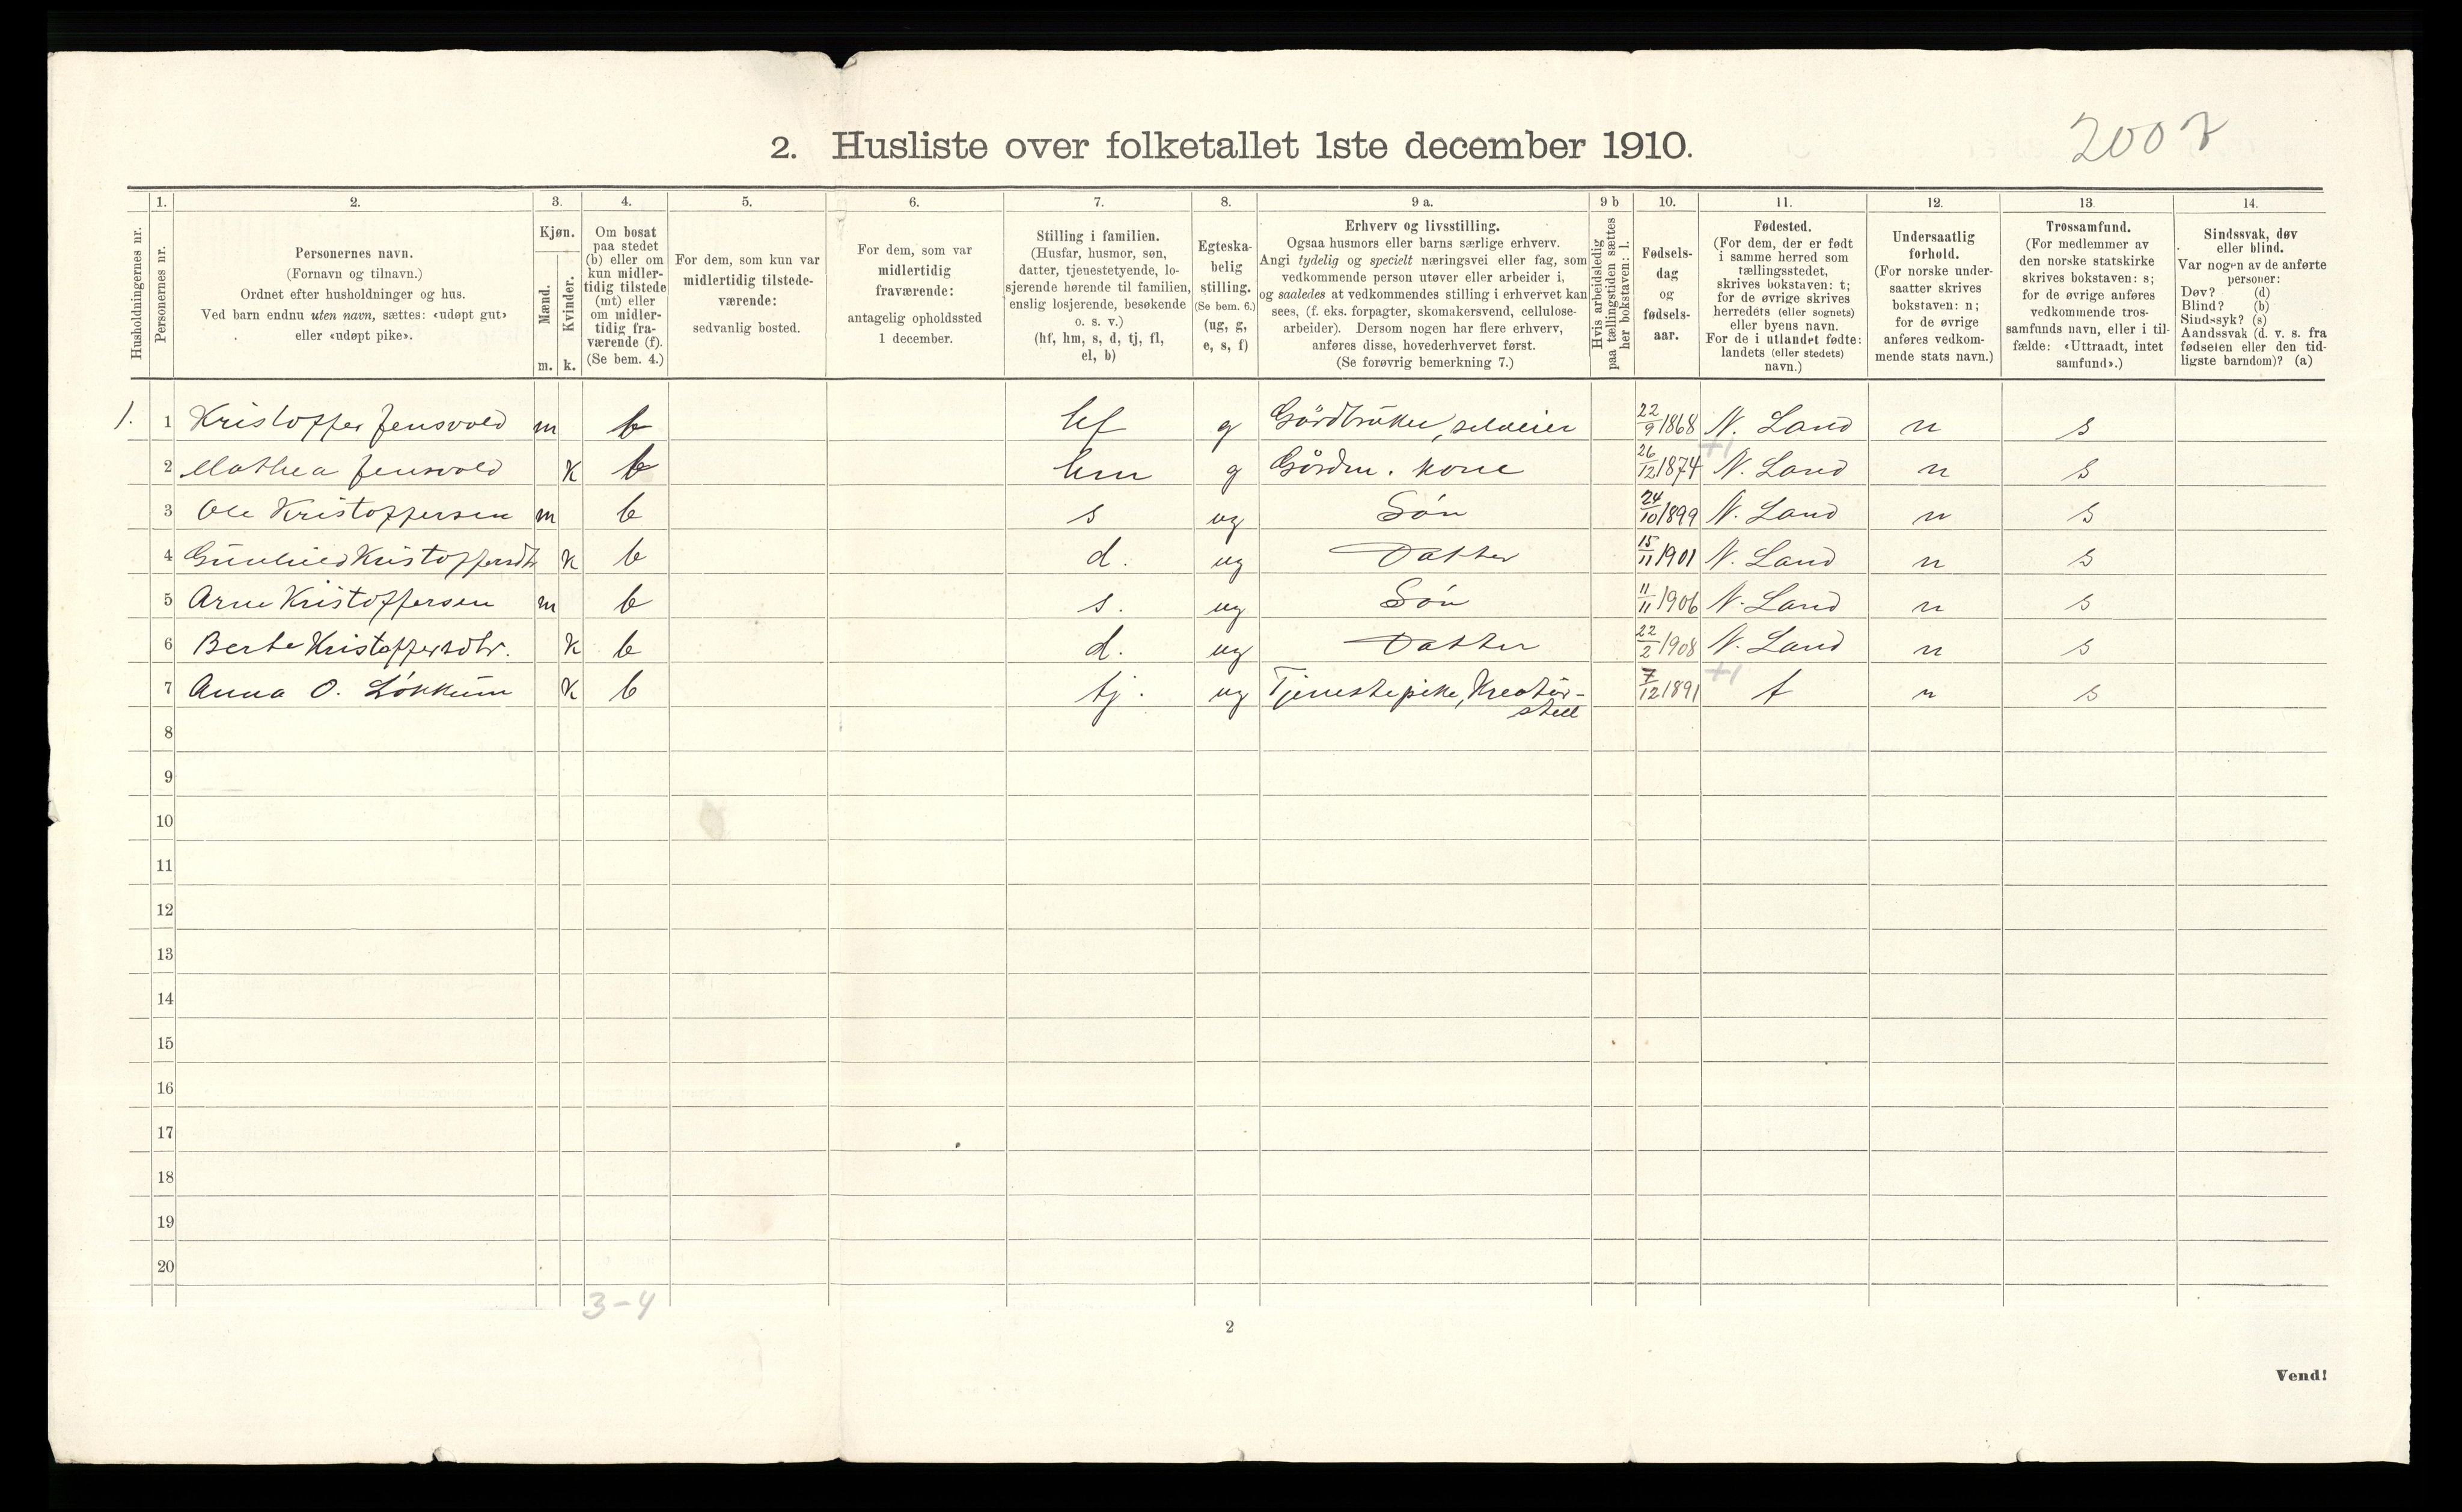 2. Husliste over folketallet 1ste december 1910.
200
Husholdningernes nr.
1.
Personernes nr.
2.
Personernes navn.
(Fornavn og tilnavn.)
Ordnet efter husholdninger og hus.
Ved barn endnu uten navn, sættes: «udøpt gut»
eller «udøpt pike».
3.
Kjøn.
Mænd.
Kvinder.
m. k.
4.
Om bosat
paa stedet
(b) eller om
kun midler-
tidig tilstede
(mt) eller
om midler-
tidig fra-
værende (f).
(Se bem. 4.)
5.
For dem, som kun var
midlertidig tilstede-
værende:
sedvanlig bosted.
6.
For dem, som var
midlertidig
fraværende:
antagelig opholdssted
1 december.
7.
Stilling i familien.
(Husfar, husmor, søn,
datter, tjenestetyende, lo-
sjerende hørende til familien,
enslig losjerende, besøkende
o. s. v.)
(hf, hm, s, d, tj, fl,
el, b)
8.
Egteska-
belig
stilling.
(Se bem. 6.)
(ug, g,
e, s, f)
9 a.
Erhverv og livsstilling.
Ogsaa husmors eller barns særlige erhverv.
Angi tydelig og specielt næringsvei eller fag, som
vedkommende person utøver eller arbeider i,
og saaledes at vedkommendes stilling i erhvervet kan
sees, (f. eks. forpagter, skomakersvend, cellulose-
arbeider). Dersom nogen har flere erhverv,
anføres disse, hovederhvervet først.
(Se forøvrig bemerkning 7.)
9 b
Hvis arbeidsledig
paa tællingstiden sættes
her bokstaven: l.
10.
Fødsels-
dag
og
fødsels-
aar.
11.
Fødested.
(For dem, der er født
i samme herred som
tællingsstedet,
skrives bokstaven: t;
for de øvrige skrives
herredets (eller sognets)
eller byens navn.
For de i utlandet fødte:
landets (eller stedets)
navn.)
12.
Undersaatlig
forhold.
(For norske under-
saatter skrives
bokstaven: n;
for de øvrige
anføres vedkom-
mende stats navn.)
13
Trossamfund.
(For medlemmer av
den norske statskirke
skrives bokstaven: s;
for de øvrige anføres
vedkommende tros-
samfunds navn, eller i til-
fælde: «Uttraadt, intet
samfund».)
14.
Sindssvak, døv
eller blind.
Var nogen av de anførte
personer:
Døv? (d)
Blind? (b)
Sindssyk? (s)
Aandssvak (d. v. s. fra
fødselen eller den tid-
ligste barndom)? (a)
1. 1 Kristoffer Jensvold m b hf g Gårdbruker, selveier 22/9 1868 N. Land n s
+1
2 Mathea Jensvold k b hm g Gårdm. kone 26/12 1874 N. Land n s
3 Ole Kristoffersen m b s ug Søn 24/10 1899 N. Land n s
4 Gunhild Kristoffersdtr k b d. ug Datter 15/11 1901 N. Land n s
5 Arne Kristoffersen m b s. ug Søn 11/11 1906 N. Land n s
6 Berte Kristoffersdtr. k b d. ug Datter 22/2 1908 N. Land n s
+1
7 Anna O. Løkkum k b tj. ug Tjenestepike, Kreatur- 7/12 1891 t n s
stell
8
9
10
11
12
13
14
15
16
17
18
19
20
3-4
2
Vend!